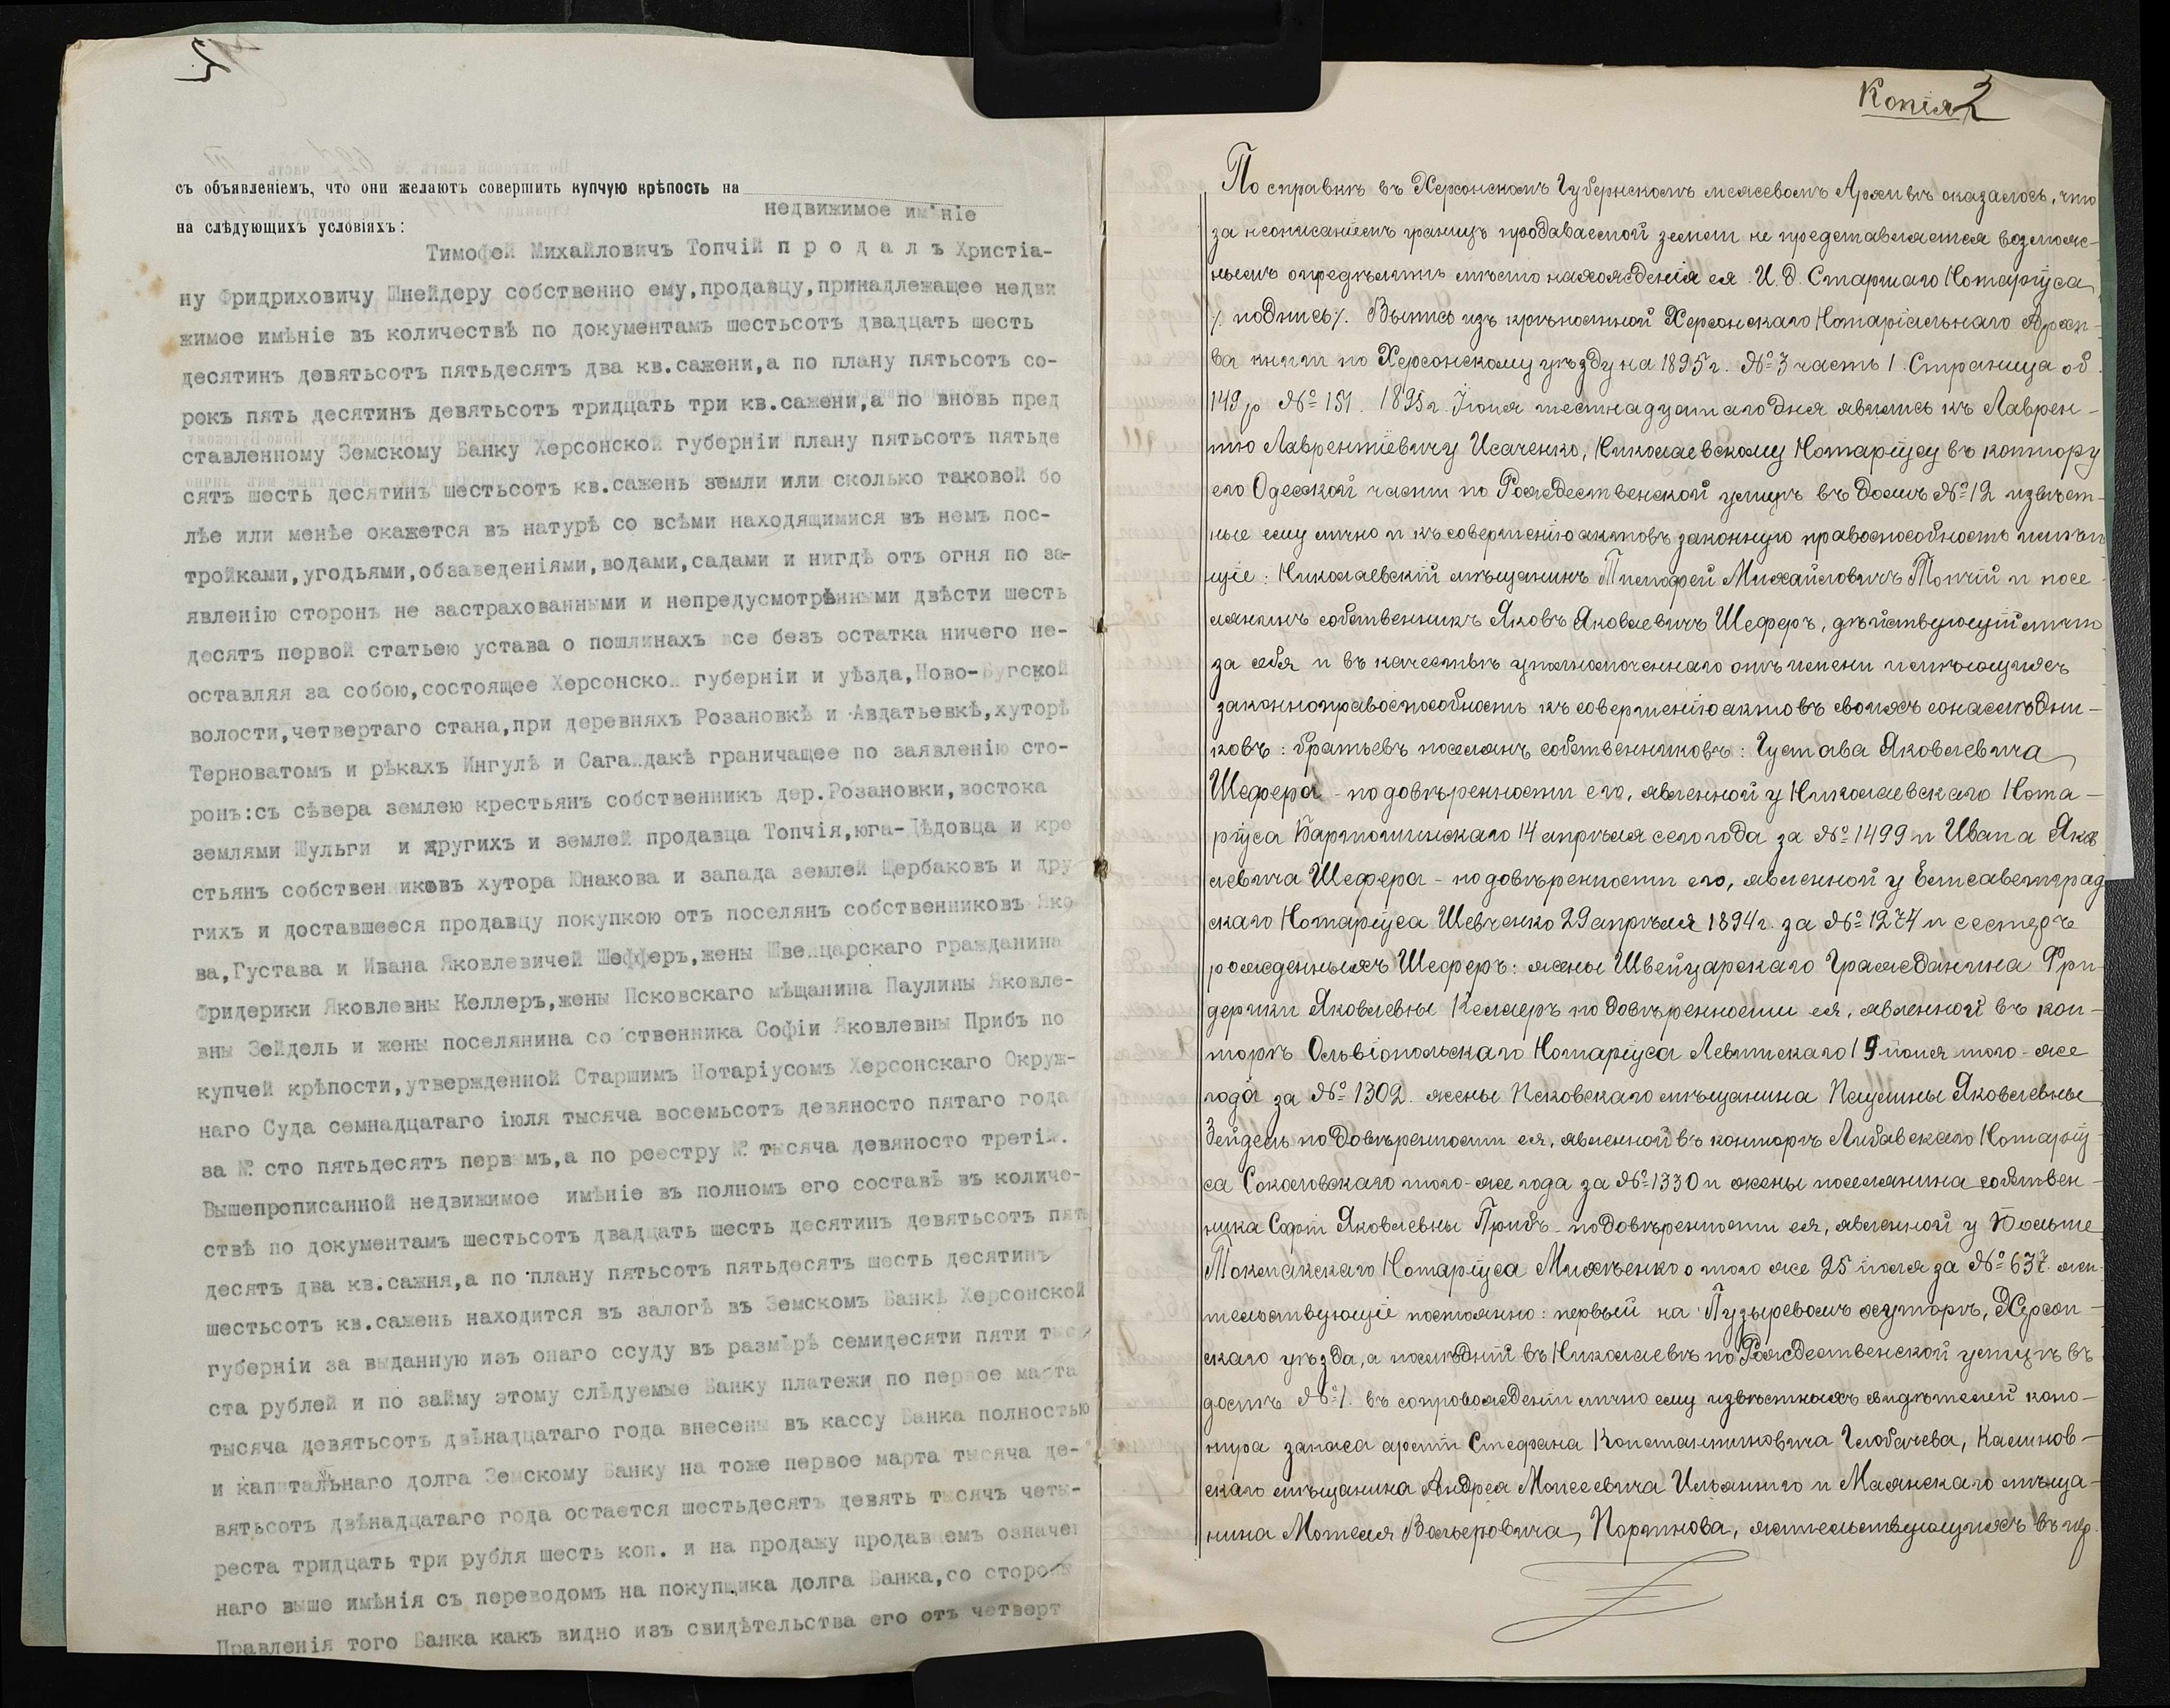 съ объявленіемъ, что они желаютъ совершить купчую крѣпость на
недвижимое имѣніе
на слѣдующихъ условіяхъ:
Тимофей Михайловичъ Топчій п р о д а л ъ Христіа-
ну Фридриховичу Шнейдеру собственно ему,продавцу,принадлежащее недви
жимое имѣніе въ количествѣ по документамъ шестьсотъ двадцать шесть
десятинъ девятьсотъ пятьдесятъ два кв.сажени,а по плану пятьсотъ со-
рокъ пять десятинъ девятьсотъ тридцать три кв.сажени,а по вновь пред
ставленному Земскому Банку Херсонской губерніи плану пятьсотъ пятьде
сятъ шесть десятинъ шестьсотъ кв.сажень земли или сколько таковой бо
лѣе или менѣе окажется въ натурѣ со всѣми находящимися въ немъ пос-
тройками,угодьями,обзаведеніями,водами,садами и нигдѣ отъ огня по за-
явленію сторонъ не застрахованными и непредусмотрѣнными двѣсти шесть
десятъ первой статьею устава о пошлинахъ все безъ остатка ничего не-
оставляя за собою,состоящее Херсонской губерніи и уѣзда,Ново-Бугской
волости,четвертаго стана,при деревняхъ Розановкѣ и Авдатьевкѣ,хуторѣ
Терноватомъ и рѣкахъ Ингулѣ и Сагайдакѣ граничащее по заявленію сто-
ронъ:съ сѣвера землею крестьянъ собственникъ дер.Розановки,востока
землями Шульги и другихъ и землей продавца Топчія,юга-Дѣдовца и кре
стьянъ собственниковъ хутора Юнакова и запада землей Щербаковъ и дру
гихъ и доставшееся продавцу покупкою отъ поселянъ собственниковъ Яко
ва,Густава и Ивана Яковлевичей Шефферъ,жены Швейцарскаго гражданина
Фридерики Яковлевны Келлеръ,жены Псковскаго мѣщанина Паулины Яковле-
вны Зейдель и жены поселянина собственника Софіи Яковлевны Прибъ по
купчей крѣпости,утвержденной Старшимъ Нотаріусомъ Херсонскаго Окруж-
наго Суда семнадцатаго іюля тысяча восемьсотъ девяносто пятаго года
за № сто пятьдесятъ первымъ,а по реестру № тысяча девяносто третій.
Вышепрописанной недвижимое имѣніе въ полномъ его составѣ въ количе-
ствѣ по документамъ шестьсотъ двадцать шесть десятинъ девятьсотъ пять
десятъ два кв.сажня,а по плану пятьсотъ пятьдесятъ шесть десятинъ
шестьсотъ кв.сажень находится въ залогѣ въ Земскомъ Банкѣ Херсонской
губерніи за выданную изъ онаго ссуду въ размѣрѣ семидесяти пяти тысяч
ста рублей и по займу этому слѣдуемые Банку платежи по первое марта
тысяча девятьсотъ двѣнадцатаго года внесены въ кассу Банка полностью
и капитальнаго долга Земскому Банку на тоже первое марта тысяча де-
вятьсотъ двѣнадцатаго года остается шестьдесятъ девять тысячъ четы-
реста тридцать три рубля шесть коп. и на продажу продавцемъ означен
наго выше имѣнія съ переводомъ на покупщика долга Банка,со стороны
Правленія того Банка какъ видно изъ свидѣтельства его отъ четверт
Копія 2
По справкѣ въ Херсонскомъ Губернскомъ межевомъ Архивѣ оказалось, что
за неописаніемъ границъ продаваемой земли не представляется возмож-
нымъ опредѣлить мѣсто нахожденія ея. И. д. Старшаго Нотаріуса
/. подпись/. Выпись изъ крѣпостной Херсонскаго Нотаріальнаго Архи-
ва книги по Херсонскому уѣзду на 1895 г. № 3 часть 1. Страница об.
149 р № 151. 1895 г. Іюня шестнадцатаго дня явились къ Лаврен-
тію Лаврентіевичу Исаченко, Николаевскому Нотаріусу въ контору
его Одесской части по Рождественской улицѣ въ домѣ № 12 извѣст-
ные ему лично и къ совершенію актовъ законную правоспособность имѣю
щіе: Николаевскій мѣщанинъ Тимофей Михайловичъ Топчій и посе
лянинъ собственникъ Яковъ Яковлевичъ Шеферъ, дѣйствующій лично
за себя и въ качествѣ уполномоченнаго отъ имени имѣющихъ
законноправоспособность къ совершенію актовъ своихъ сонаслѣдни-
ковъ: братьевъ поселянъ собственниковъ: Густава Яковлевича
Шефера - по довѣренности его, явленной у Николаевскаго Нота-
ріуса Бартошинскаго 14 апрѣля сего года за № 1499 и Ивана Яков
левича Шефера - по довѣренности его, явленной у Елисаветград
скаго Нотаріуса Шевченко 29 апрѣля 1894 г. за № 1274 и сестеръ
рожденныхъ Шеферъ: жены Швейцарскаго Гражданина Фри-
дерики Яковлевны Келлеръ по довѣренности ея, явленной въ кон-
торѣ Ольвіопольскаго Нотаріуса Левитскаго 19 іюня того-же
года за № 1302. жены Псковскаго мѣщанина Паулины Яковлевны
Зейдель по довѣренности ея, явленной въ конторѣ Либавскаго Нотаріу
са Соколовскаго того-же года за № 1330 и жены поселянина собствен-
ника Софіи Яковлевны Прибъ - по довѣренности ея, явленной у Больше
Токмакскаго Нотаріуса Михѣенко того же 25 іюля за № 637. жи-
тельствующіе постоянно: первый на Пузыревомъ хуторѣ, Херсон-
скаго уѣзда, а послѣдній въ Николаевѣ по Рождественской улицѣ въ
домѣ № 1. въ сопровожденіи лично ему извѣстныхъ свидѣтелей коно-
нира запаса арміи Стефана Константиновича Глобачева, Калинов-
скаго мѣщанина Андрея Моисеевича Ильяшаго и Маянскаго мѣща-
нина Мотеля Вольеровича Портнова, жительствующихъ въ гор.